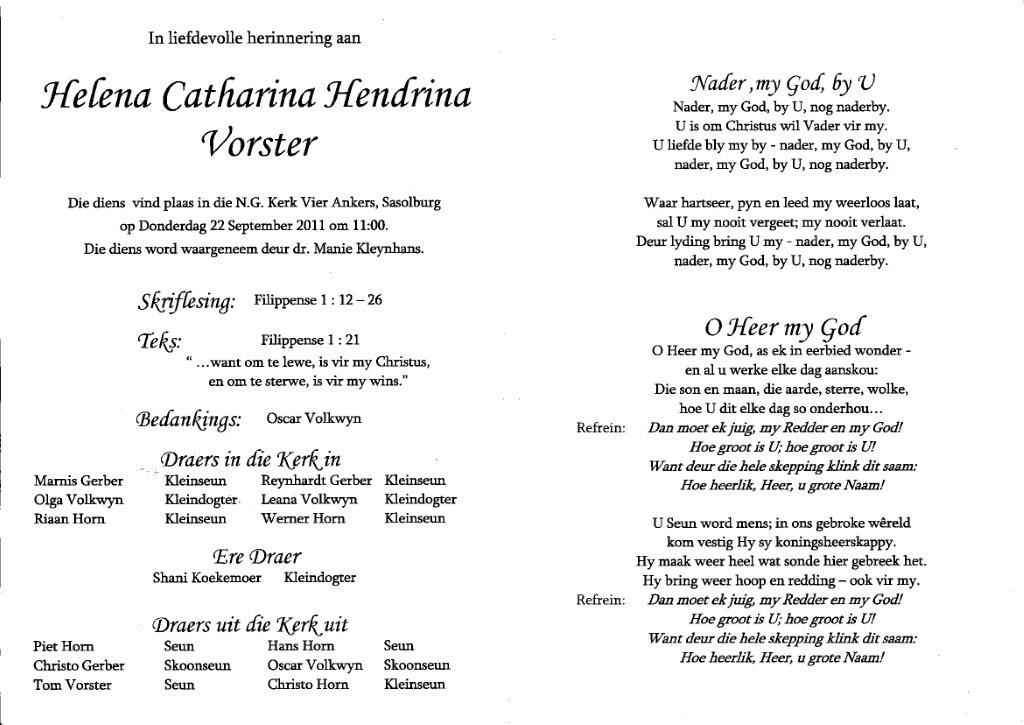 In liefdevolle herinnering aan
Helena Catharina Hendrina
Vorster
Die diens vind plaas in die N.G. Kerk Vier Ankers, Sasolburg
op Donderdag 22 September 2011 om 11:00.
Die diens word waargeneem deur dr. Manie Kleynhans.
Skriflesing: Filippense 1 : 12 – 26
Teks: Filippense 1 : 21
“ …want om te lewe, is vir my Christus,
en om te sterwe, is vir my wins.”
Bedankings: Oscar Volkwyn
Draers in die Kerk in
Marnis Gerber Kleinseun Reynhardt Gerber Kleinseun
Olga Volkwyn Kleindogter Leana Volkwyn Kleindogter
Riaan Horn Kleinseun Werner Horn Kleinseun
Ere Draer
Shani Koekemoer Kleindogter
Draers uit die Kerk uit
Piet Horn Seun Hans Horn Seun
Christo Gerber Skoonseun Oscar Volkwyn Skoonseun
Tom Vorster Seun Christo Horn Kleinseun
Nader ,my God, by U
Nader, my God, by U, nog naderby.
U is om Christus wil Vader vir my.
U liefde bly my by - nader, my God, by U,
nader, my God, by U, nog naderby.
Waar hartseer, pyn en leed my weerloos laat,
sal U my nooit vergeet; my nooit verlaat.
Deur lyding bring U my - nader, my God, by U,
nader, my God, by U, nog naderby.
O Heer my God
O Heer my God, as ek in eerbied wonder -
en al u werke elke dag aanskou:
Die son en maan, die aarde, sterre, wolke,
hoe U dit elke dag so onderhou…
Refrein: Dan moet ek juig, my Redder en my God!
Hoe groot is U; hoe groot is U!
Want deur die hele skepping klink dit saam:
Hoe heerlik, Heer, u grote Naam!
U Seun word mens; in ons gebroke wêreld
kom vestig Hy sy koningsheerskappy.
Hy maak weer heel wat sonde hier gebreek het.
Hy bring weer hoop en redding – ook vir my.
Refrein: Dan moet ek juig, my Redder en my God!
Hoe groot is U; hoe groot is U!
Want deur die hele skepping klink dit saam:
Hoe heerlik, Heer, u grote Naam!